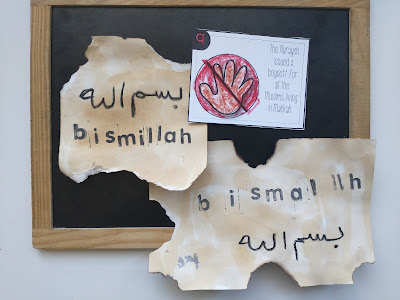 بسم الله
bismillah
9
The Quraysh
issued a
boycott for
all the
Muslims living
in Makkah
bismallah
بسم الله